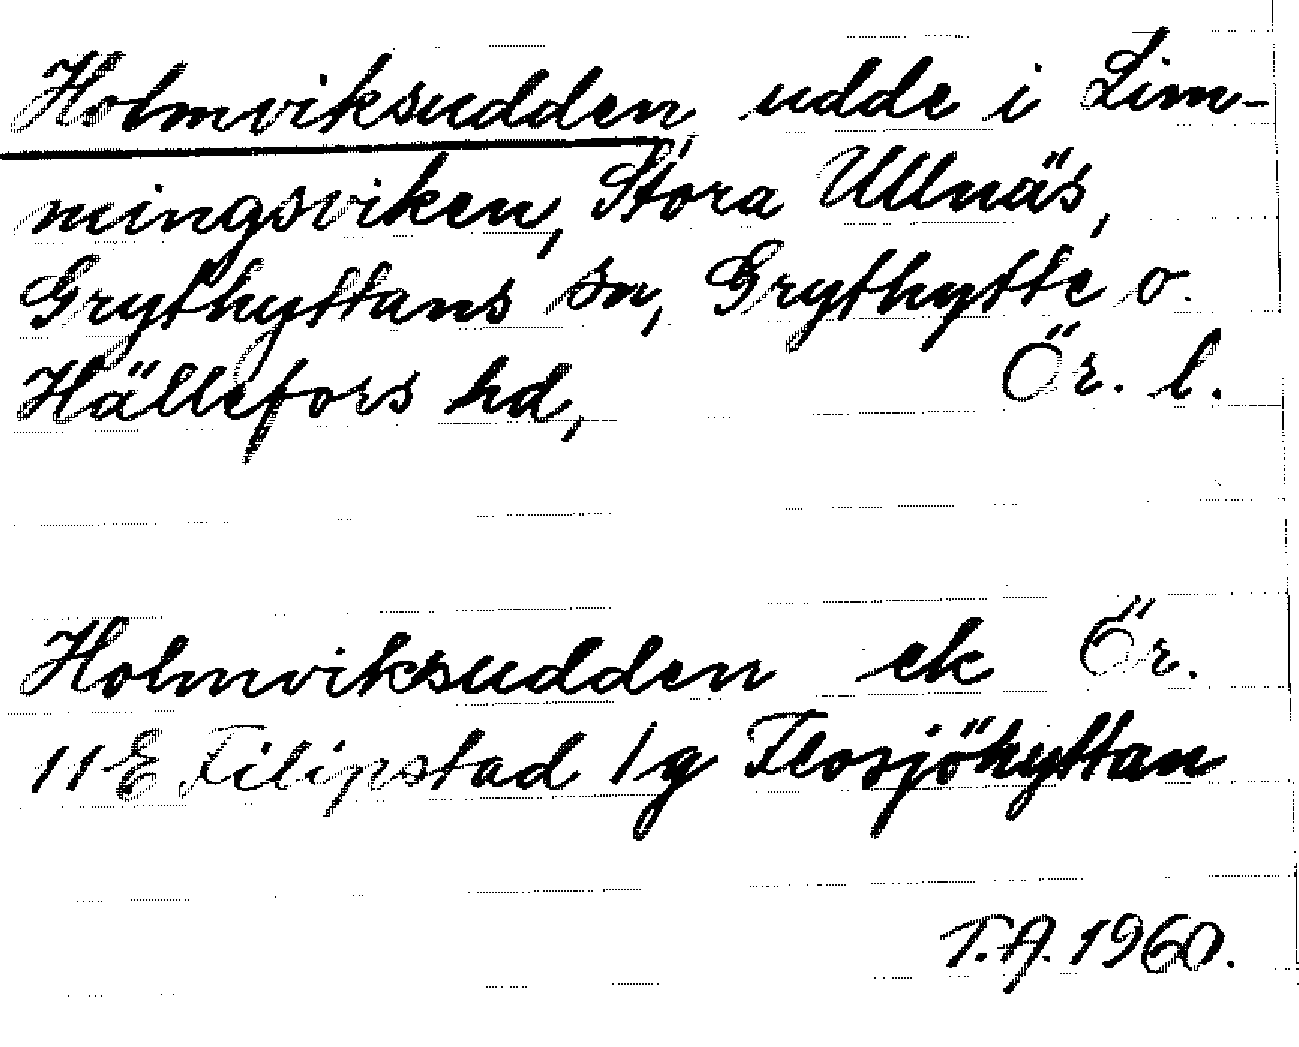 Holmviksudden, udde i Lim-
mingsviken, Stora Ullnäs,
Grythyttans sn, Grythytte o.
Hällefors hd, Ör. l.
Holmviksudden ek Ör.
11E Filipstad 1g Flosjöhyttan
T.A. 1960.